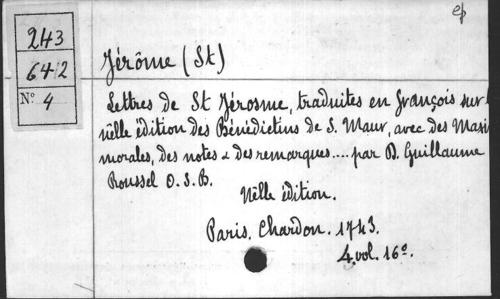 ep
243
642
N° 4
Jérôme (St)
Lettres de St Jérosme, traduites en François sur
nělle édition des Bénédictins de S. Maur, avec des Maxi
morales, des notes & des remarques.... par D. Guillaume
Roussel O.S.B.
Nělle édition.
Paris. Chardon. 1743.
4 vol. 16°.